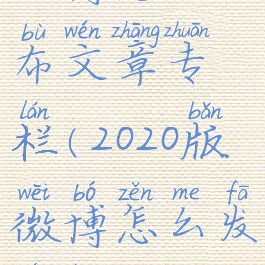 bù wén zhāng zhuān
布文章专
lán bǎn
栏(2020版
wēi bó zěn me fā
微博怎么发